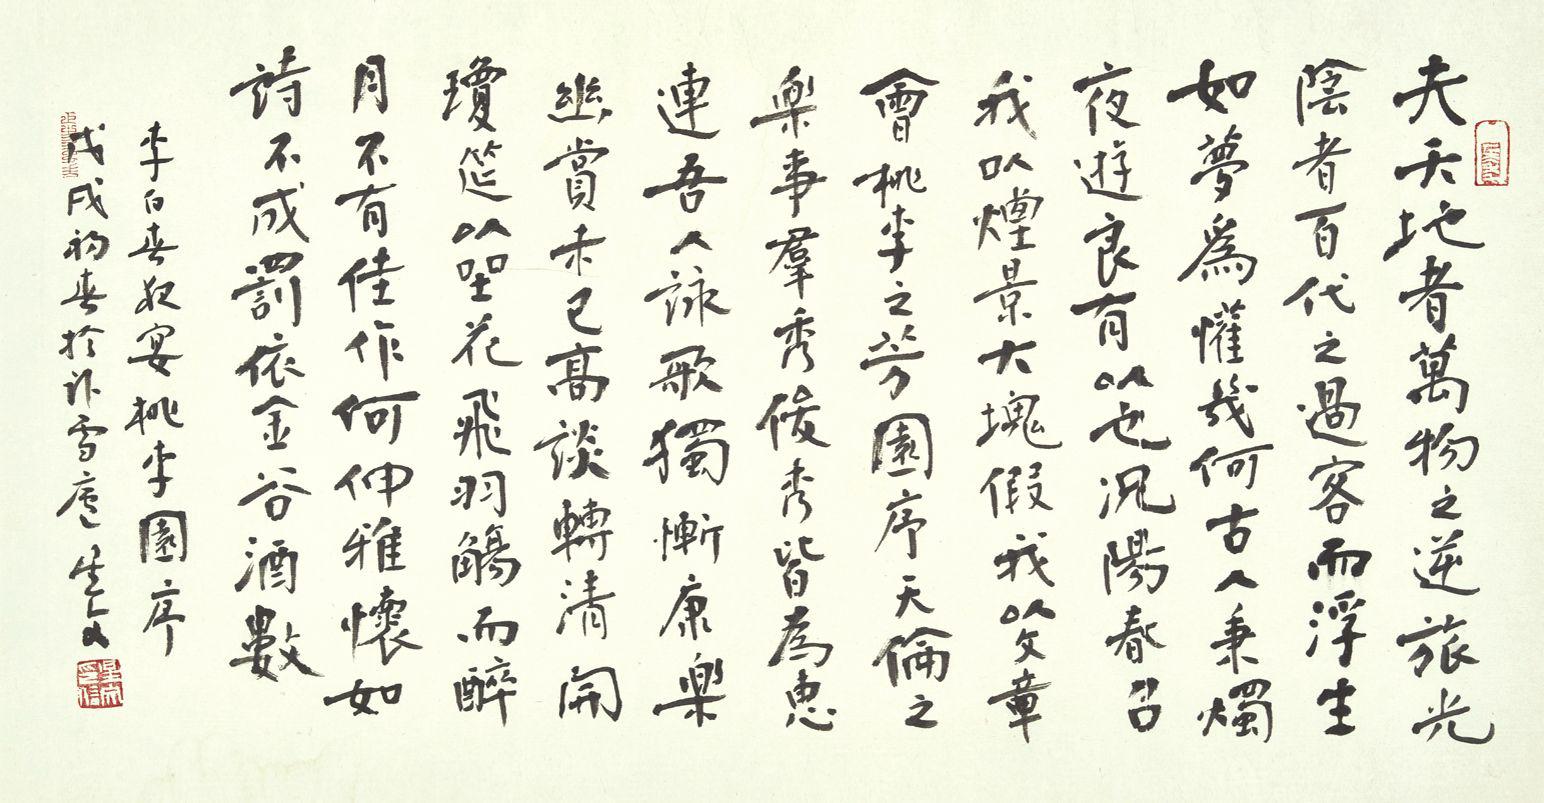 夫天地者萬物之逆旅光
陰者百代之過客而浮生
如夢爲懽幾何古人秉燭
夜遊良有以也況陽春召
我以煙景大塊假我以文章
會桃李之芳園序天倫之
樂事羣秀俊秀皆為惠
連吾人詠歌獨慚康樂
幽賞未已高談轉清開
瓊筵以坐花飛羽觴而醉
月不有佳作何伸雅懷如
詩不成罰依金谷酒數
李白春夜宴桃李園序
戊戌初春於雪廬